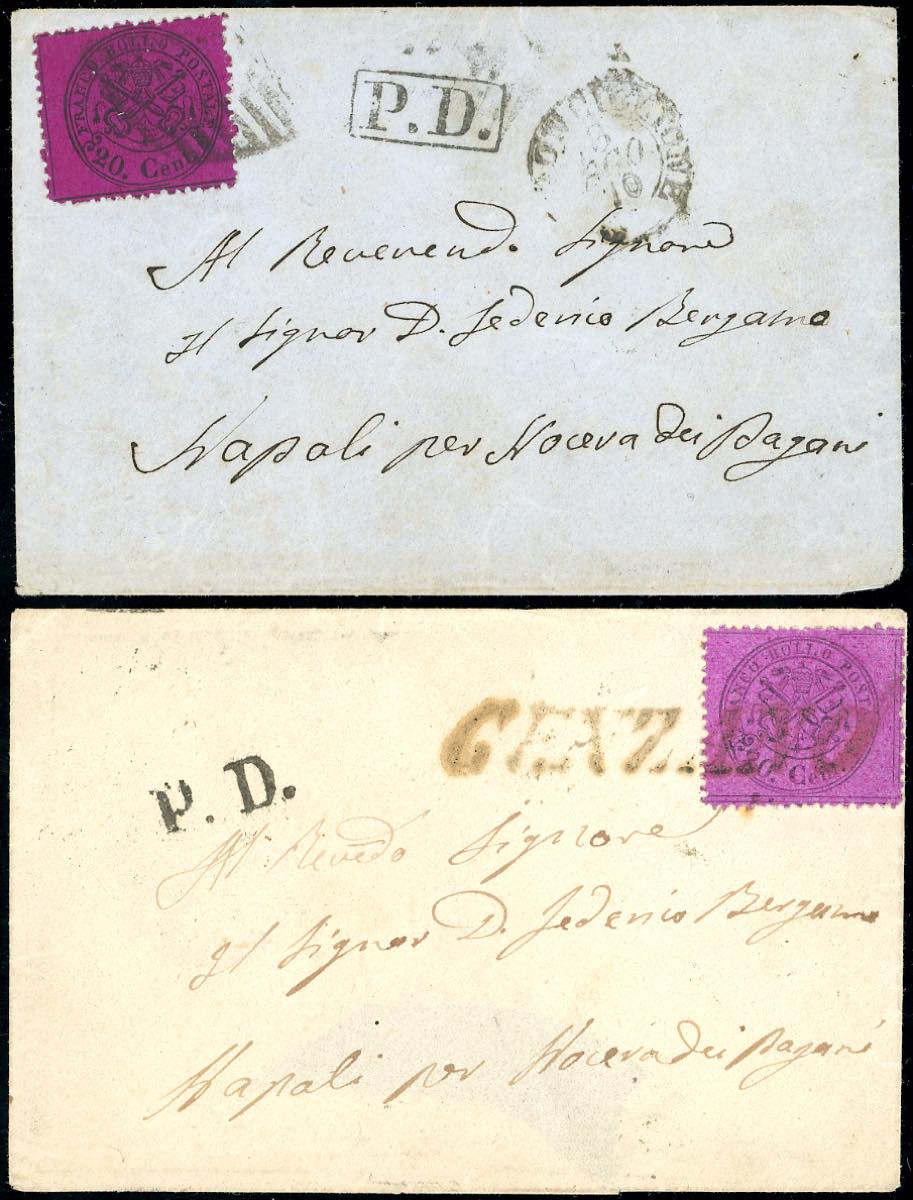 FRANCO BOLLO POSTALE
20. Cent.
P.D.
Al Reverendo Signore
Il Signor D. Federico Bergamo
Napoli per Nocera dei Pagani
FRANCO BOLLO POSTALE
20. Cent.
P. D.
Al Revedo Signore
Il Signor D. Federico Bergamo
Napoli per Nocera dei Pagani